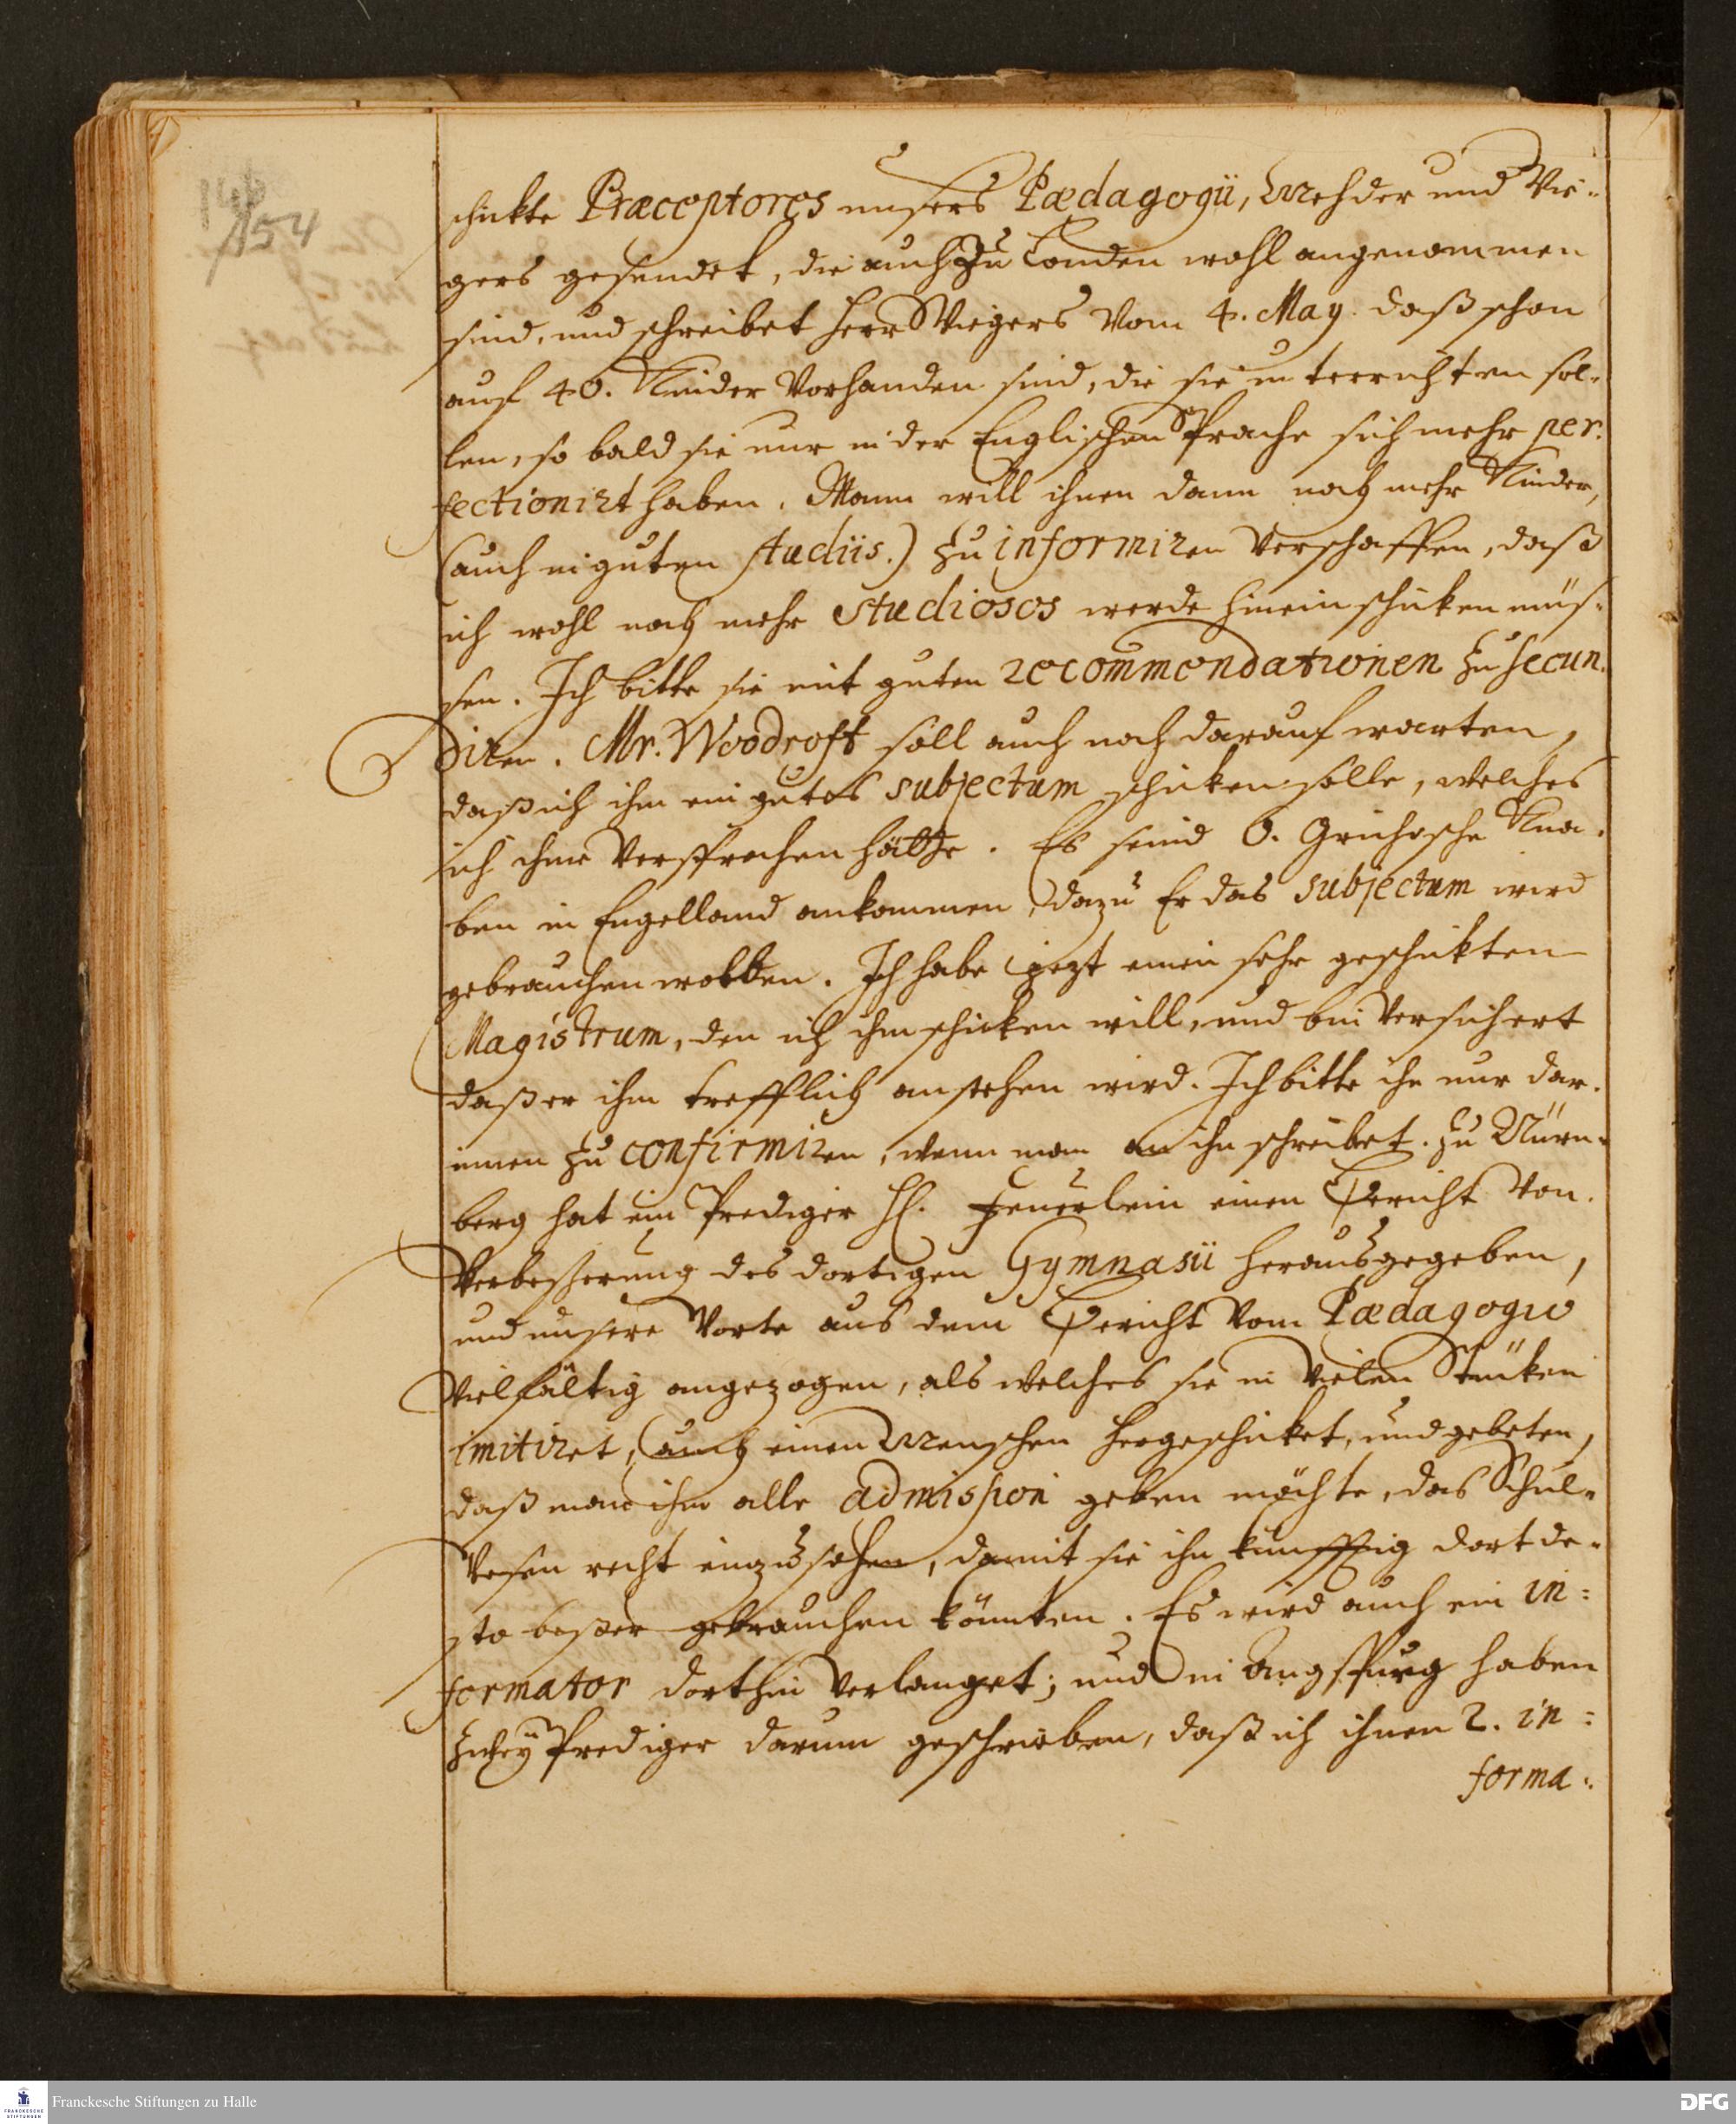 146
154
schikte Præceptores unsers Pædagogii, Mehder und Wie-
gers gesendet, die auch zu Londen wohl angenommen
sind, und schreibet Herr Wiegers vom 4. May. daß schon
auf 40. Kinder vorhanden sind, die sie unterrichten sol-
len, so bald sie nur in der Englischen Sprache sich mehr per-
fectionirt haben. Mann will ihnen dann noch mehr Kinder,
(auch in guten studiis.) zu informiren verschaffen, daß
ich wohl noch mehr Studiosos werde hinein schicken müs-
sen. Ich bitte sie mit guten recommendationen zu secun-
diren. Mr. Woodroff soll auch noch darauf warten,
daß ich ihm ein gutes subjectum schicken solle, welches
ich ihme versprochen hätte. Es seind 6. Grichische Kna-
ben in Engelland ankommen, dazu Er das subjectum wird
gebrauchen wollen. Ich habe jezt einen sehr geschikten
Magistrum, den ich ihm schicken will, und bin versichert
daß er ihm trefflich anstehen wird. Ich bitte ihn nur dar-
innen zu confirmiren, wenn man an ihn schreibet. Zu Nürn-
berg hat ein Prediger H. Feuerlein einen Bericht von
Verbesserung des dortigen Gymnasii herausgegeben,
und unsere Worte aus dem Bericht vom Pædagogio
vielfältig angezogen, als welches sie in vielen Stüken
imitiret, auch einen Menschen hergeschicket, und gebeten,
daß man ihm alle admission geben möchte, das Schul-
Wesen recht einzusehen, damit sie ihn künfftig dort de-
sto beßer gebrauchen könnten. Es wird auch ein in-
formator dorthin verlanget; und in Augspurg haben
zwey Prediger darum geschrieben, daß ich ihnen 2. in-
forma-
Franckesche Stiftungen zu Halle
DFG